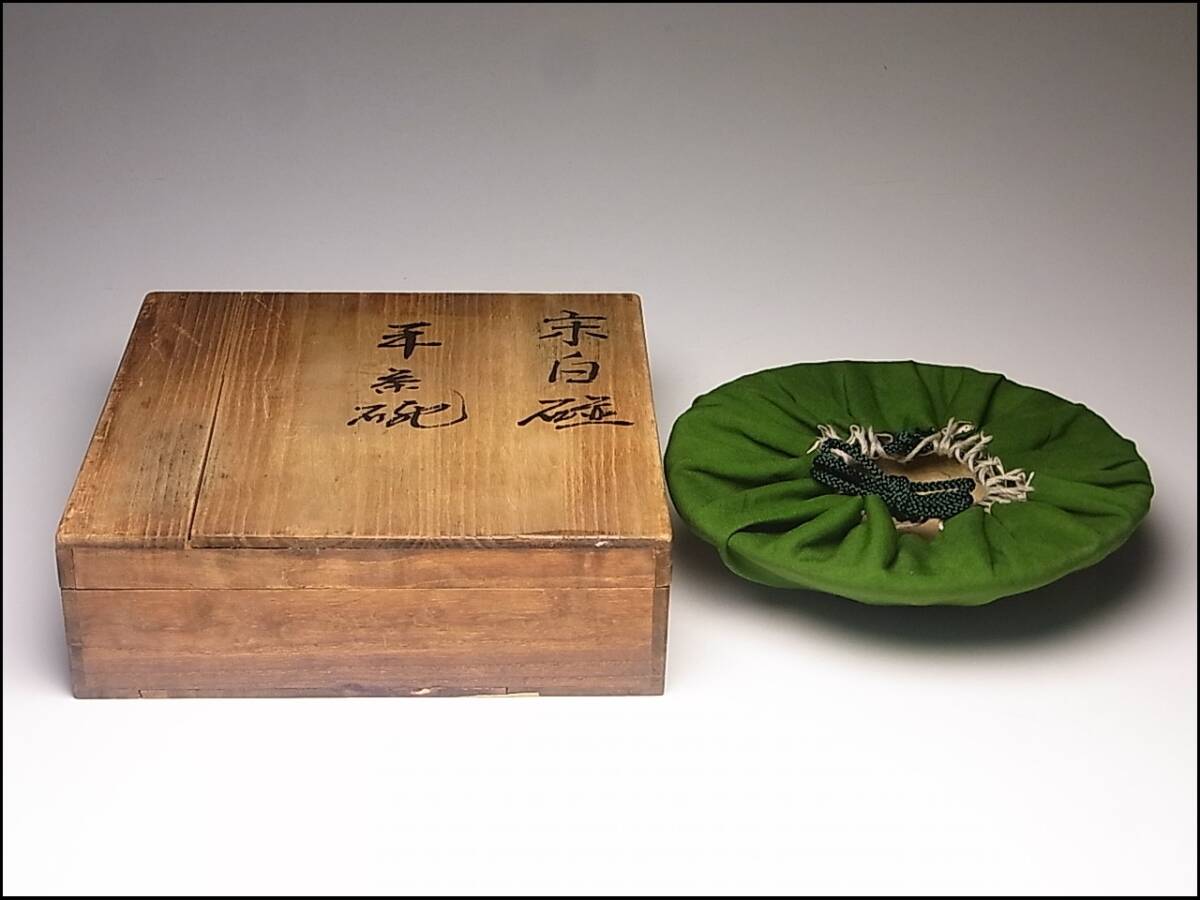 宋白磁
平茶碗